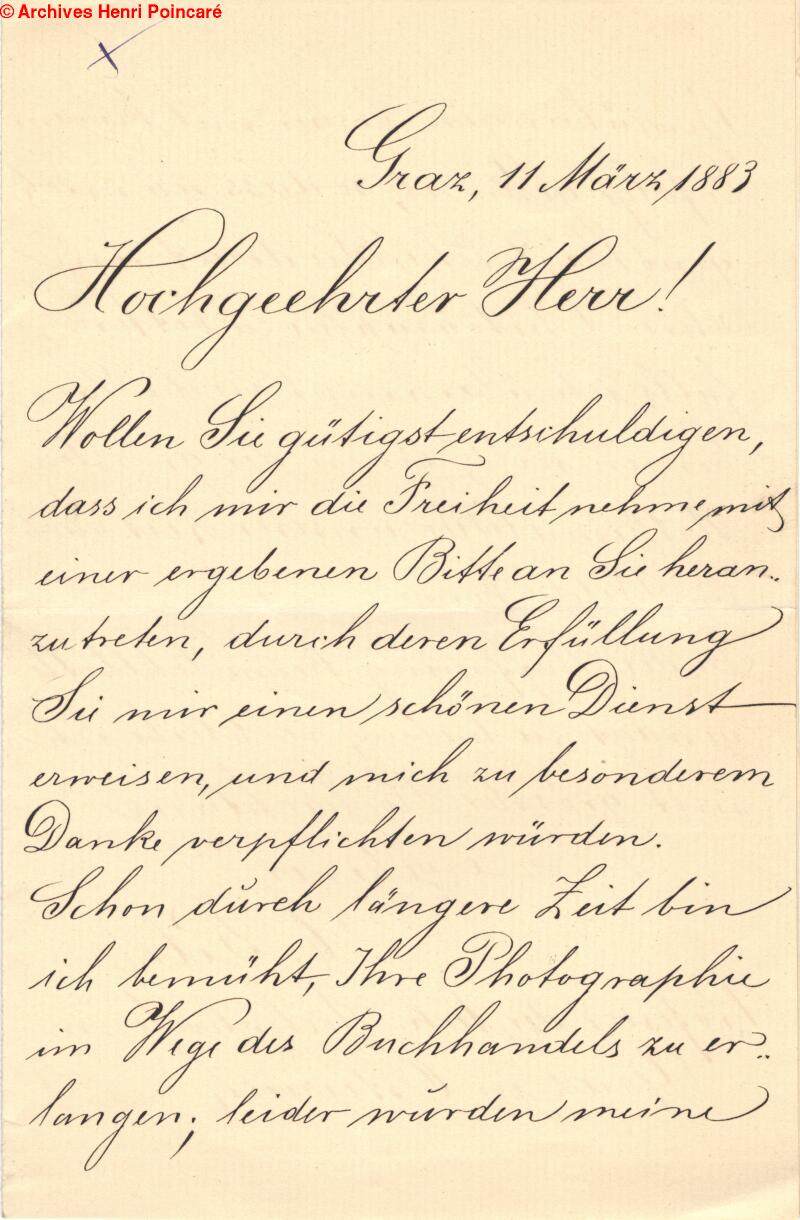 © Archives Henri Poincaré
Graz, 11 März 1883
Hochgeehrter Herr!
Wollen Sie gütigst entschuldigen,
dass ich mir die Freiheit nehme mit
einer ergebenen Bitte an Sie heran-
zutreten, durch deren Erfüllung
Sie mir einen schönen Dienst
erweisen, und mich zu besonderem
Danke verpflichten würden.
Schon durch längere Zeit bin
ich bemüht, Ihre Photographie
im Wege des Buchhandels zu er-
langen; leider wurden meine